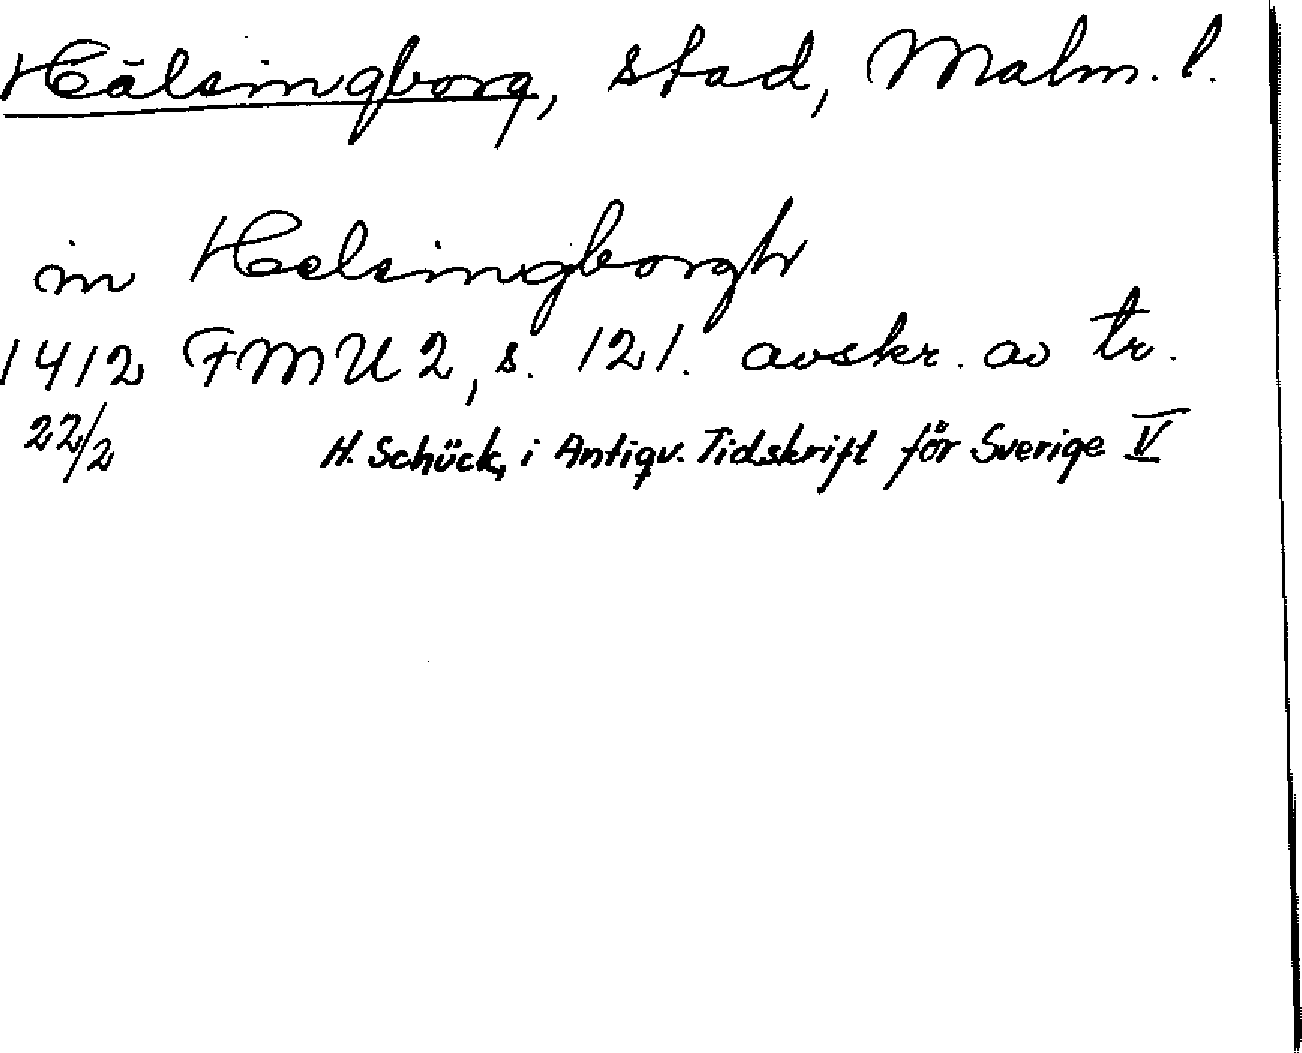 Hälsingborg, stad, Malm. l.
in Helsingborgh
1412 FMU 2, s. 121. avskr. av tr.
22/2 H. Schück, i Antiqv. Tidskrift för Sverige V